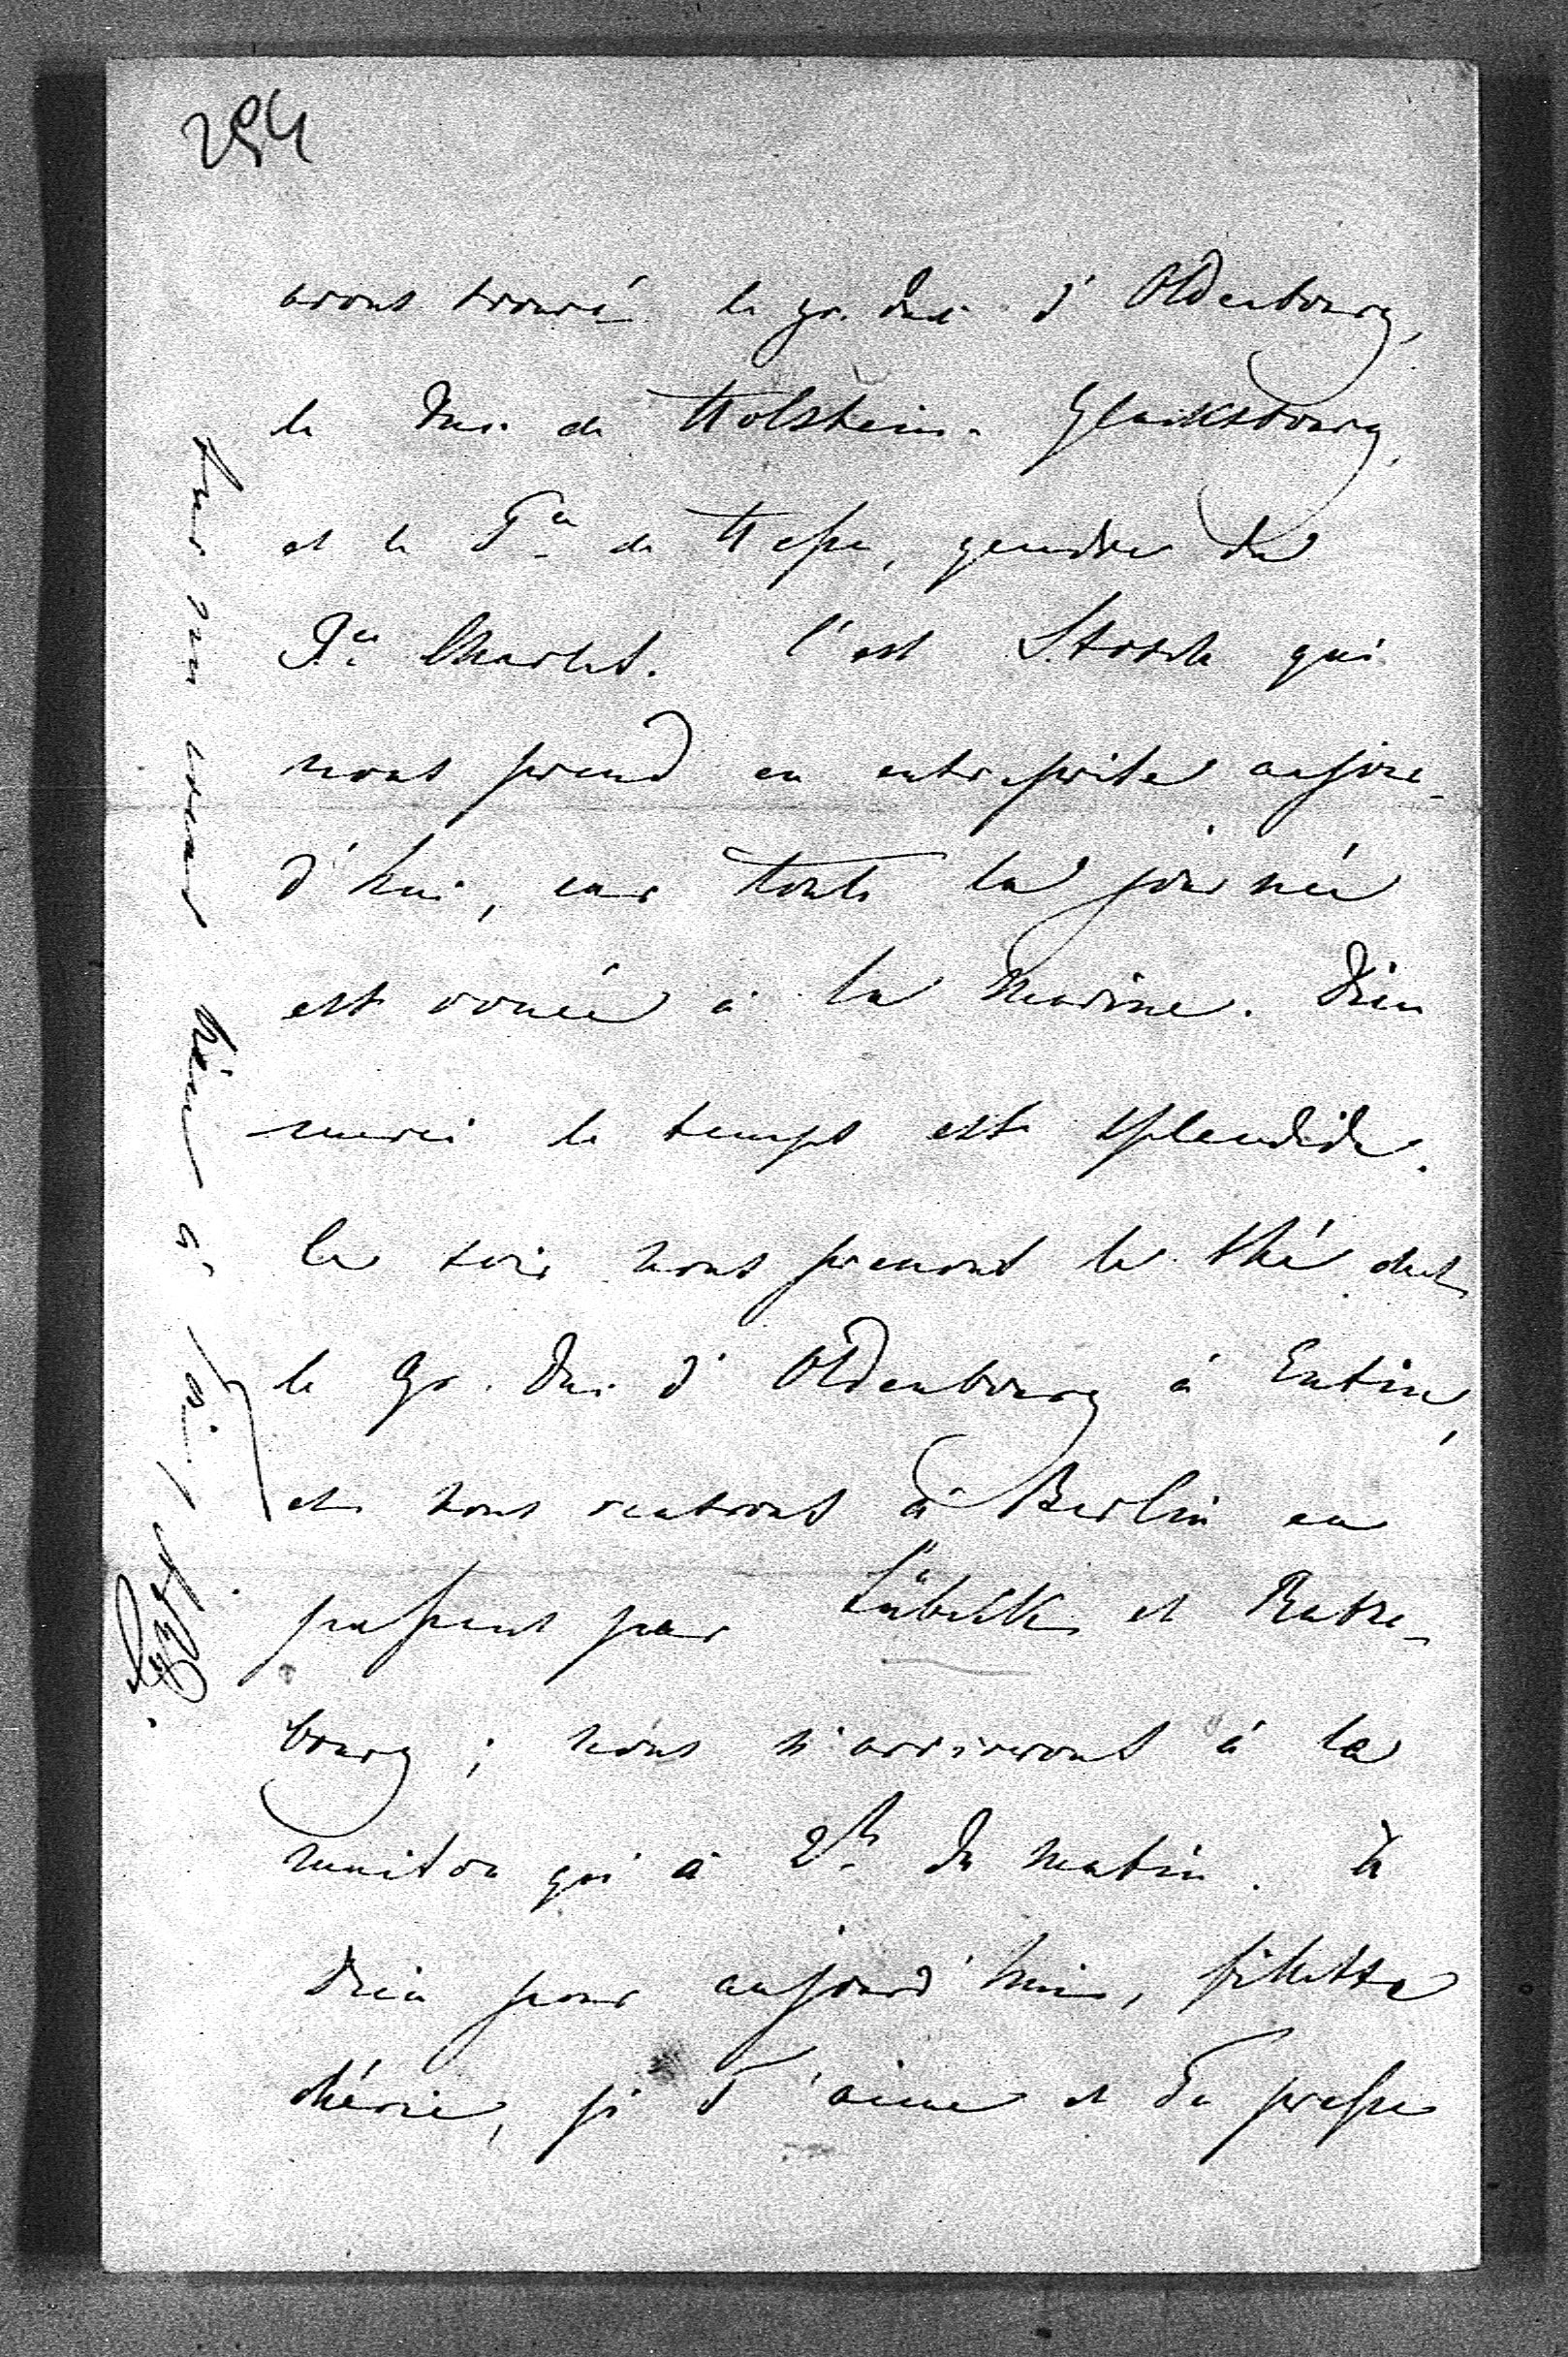 294
avons trouvé le gr. duc d'Oldenbourg,
le Duc de Holstein-Glucksbourg,
et le Pce de Hesse, gendre du
Pce Charles. C'est Stosch qui
nous prend en entreprise aujour-
d'hui, car toute la journée
est vouée à la Marine. Dieu
merci le temps est splendide.
Ce soir nous prenons le thé chez
le Gr. Duc d'Oldenbourg à Eutin,
et nous rentrons à Berlin en
passant par Lübeck et Ratze-
bourg ; nous n'arriverons à la
maison qu'à 2h du matin. A
Dieu pour aujourd'hui, fillette
chérie, je t'aime et Te presse
sur mon cœur bien à Toi!